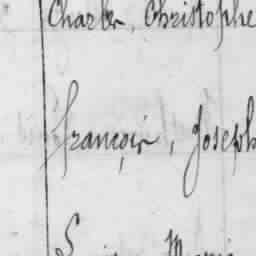 Charles, Christophe
françois, Joseph